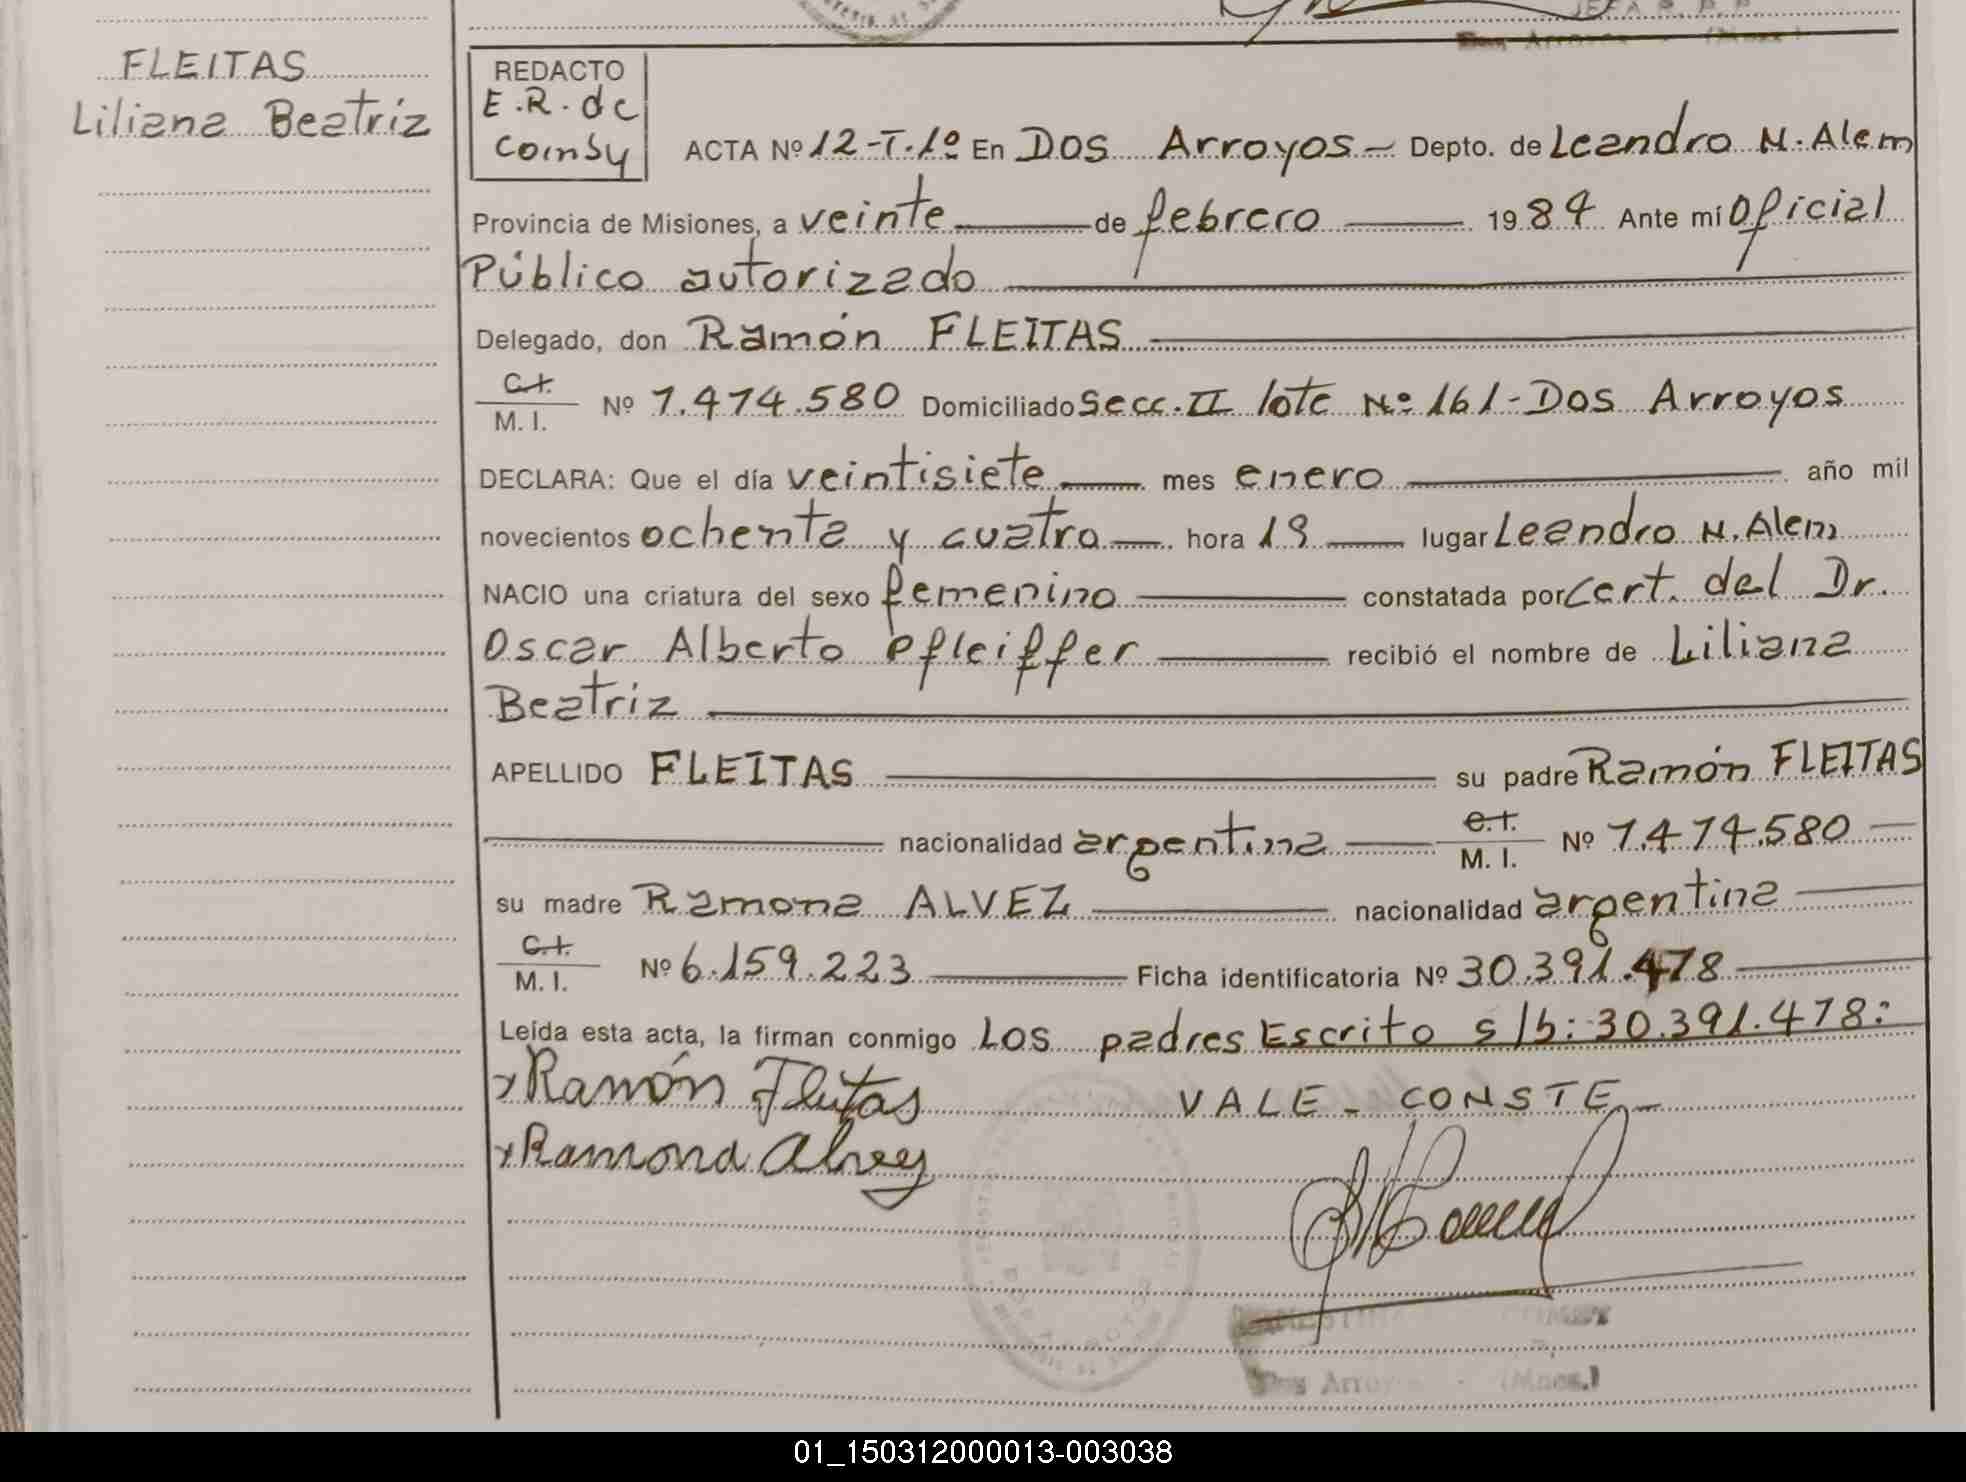 FLEITAS
Liliana Beatriz
REDACTO
E.R. de
Coinsy
ACTA Nº 12-T.1º En Dos Arroyos - Depto. de Leandro N. Alem
Provincia de Misiones, a veinte de febrero 1984 Ante mí Oficial
Público autorizado
Delegado, don Ramón FLEITAS
C.I.
M. I. Nº 7.474.580 Domiciliado Secc. II lote Nº 161 - Dos Arroyos
DECLARA: Que el día veintisiete mes enero año mil
novecientos ochenta y cuatro hora 19 lugar Leandro N. Alem
NACIO una criatura del sexo femenino constatada por Cert. del Dr.
Oscar Alberto Pfleiffer recibió el nombre de Liliana
Beatriz
APELLIDO FLEITAS su padre Ramón FLEITAS
nacionalidad argentina C.I. M. I. Nº 7.474.580
su madre Ramona ALVEZ nacionalidad argentina
C.I.
M. I. Nº 6.159.223 Ficha identificatoria Nº 30.391.478
Leída esta acta, la firman conmigo Los padres Escrito s/b: 30.391.478:
Ramón Fleitas VALE - CONSTE -
Ramona Alvez
Dos Arroyos (Mnes.)
01_150312000013-003038